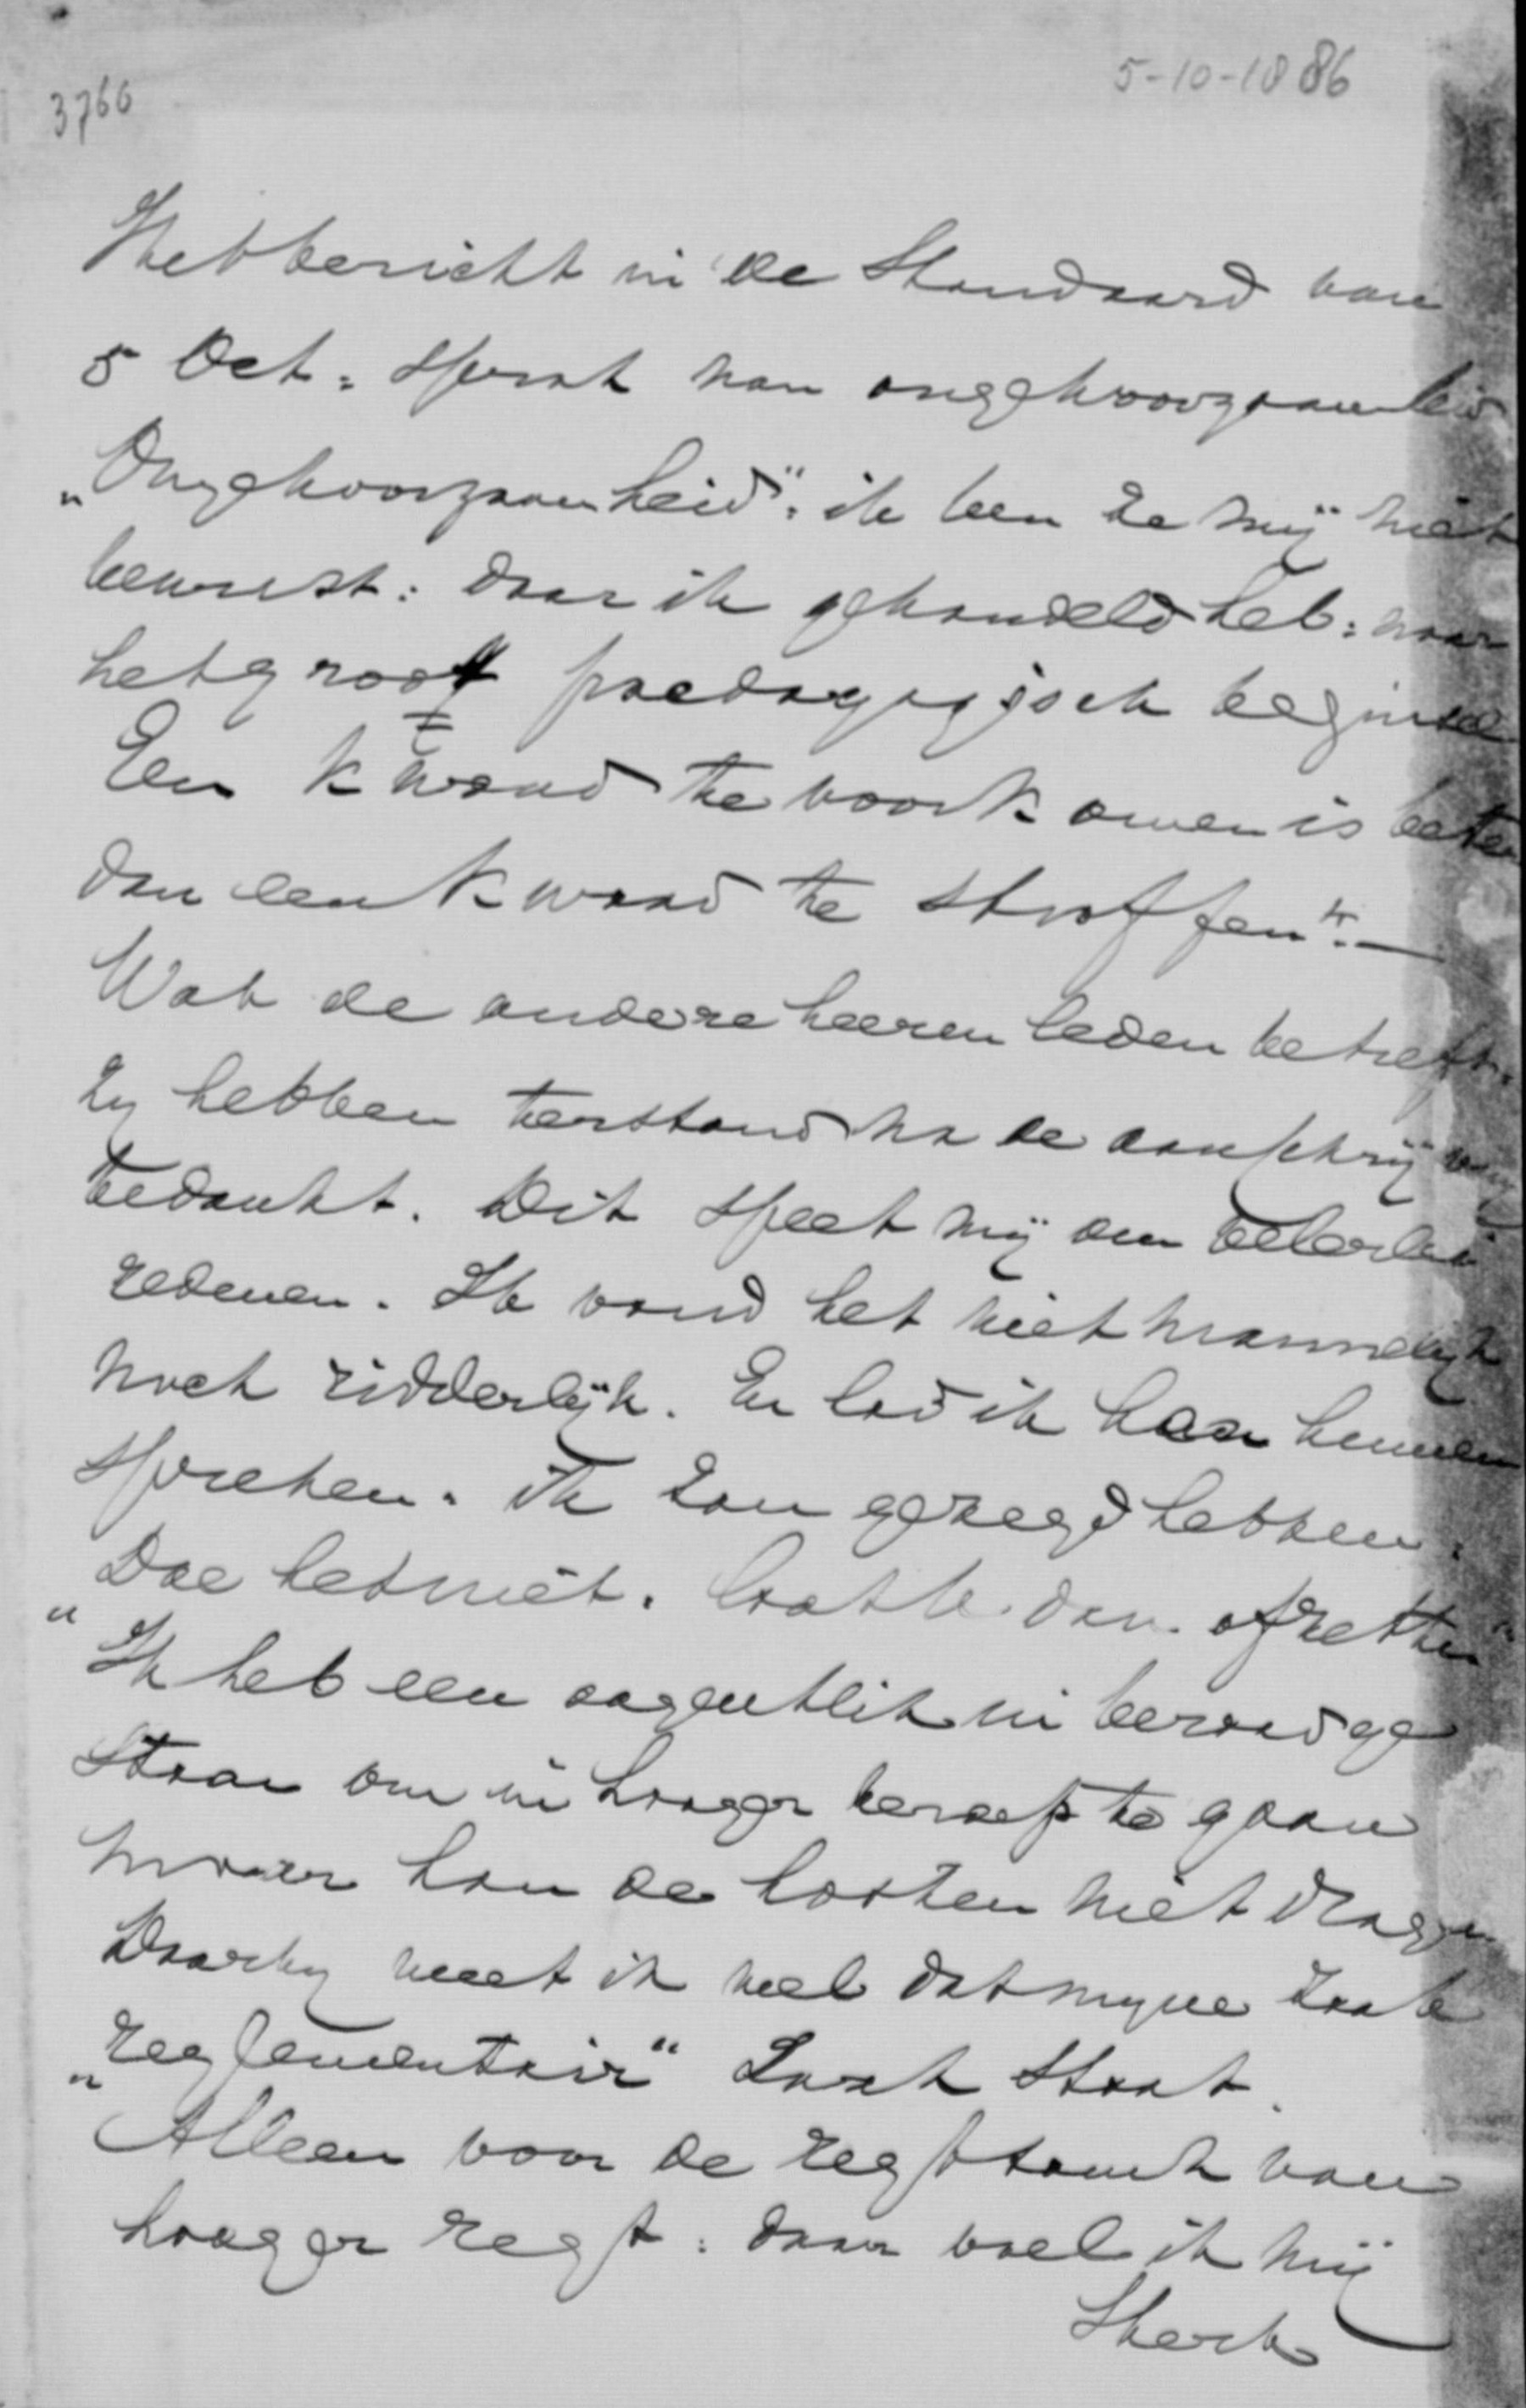 5-10-1886
3766
Het bericht in de Standaard van
5 Oct: sprak van ongehoorzaamheid
"Ongehoorzaamheid": ik ben ze mij niet
bewust: daar ik gehandeld heb: naar
het groot paedagogisch beginsel
Een kwaad te voorkomen is beter
dan een kwaad te straffen". —
Wat de andere heeren leden betreft.
zy hebben terstond na de aanschrijving
bedankt. Dit speet mij om velerlei
redenen. Ik vond het niet mannelijk
noch ridderlijk. En had ik hen kunnen
spreken. ik zou gezegd hebben:
"Doe het niet. laat U dan afzetten"
Ik heb een oogenblik in beraad ge
staan om in hooger beroep te gaan
maar kon de kosten niet dragen
Daarby weet ik wel dat myne zaak
"reglementair" zwak staat.
Alleen voor de regtbank van
hooger regt: daar voel ik mij
Sterk